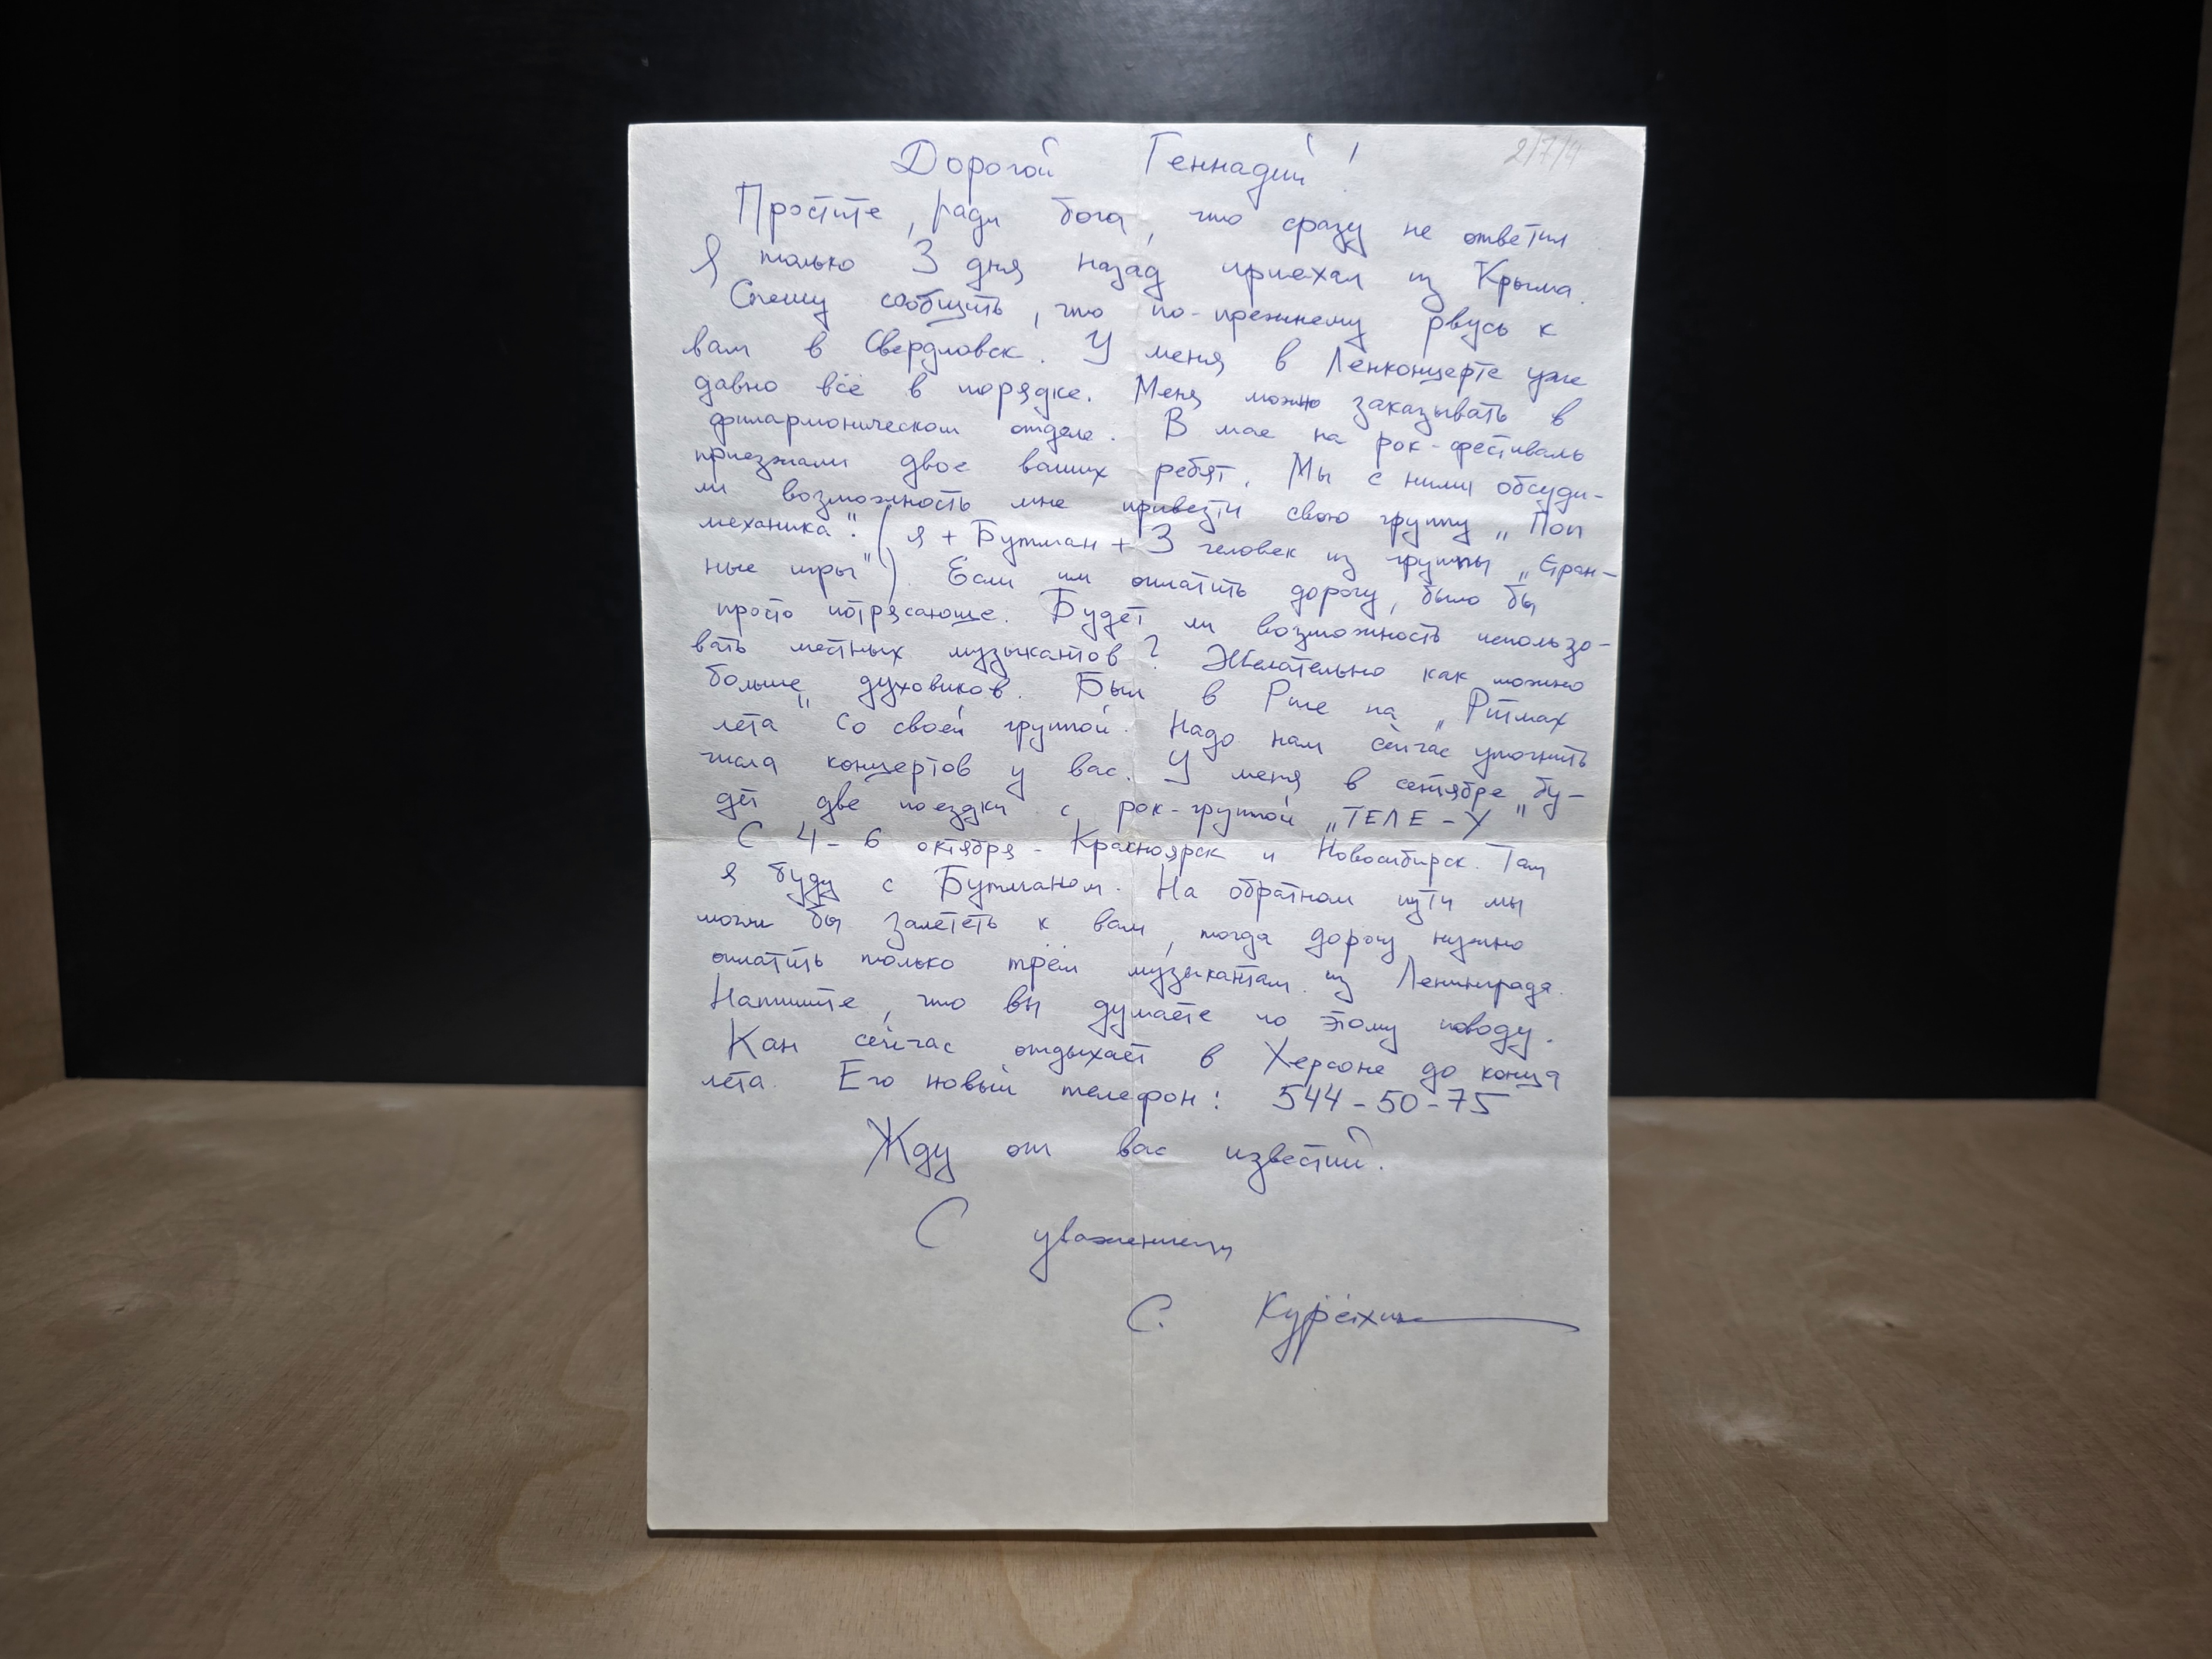 2/7/4
Дорогой Геннадий!
Простите, ради бога, что сразу не ответил
Я только 3 дня назад приехал из Крыма.
Спешу сообщить, что по-прежнему рвусь к
вам в Свердловск. У меня в Ленконцерте уже
давно всё в порядке. Меня можно заказывать в
филармоническом отделе. В мае на рок-фестиваль
приезжали двое ваших ребят. Мы с ними обсуди-
ли возможность мне привезти свою группу „Поп
механика". (я + Бутман + 3 человек из группы „Стран-
ные игры"). Если им оплатить дорогу, было бы
просто потрясающе. Будет ли возможность использо-
вать местных музыкантов? Желательно как можно
больше духовиков. Был в Риге на „Ритмах
лета" со своей группой. Надо нам сейчас уточнить
числа концертов у вас. У меня в сентябре бу-
дет две поездки с рок-группой „ТЕЛЕ-У"
С 4-6 октября - Красноярск и Новосибирск. Там
я буду с Бутманом. На обратном пути мы
могли бы залететь к вам, тогда дорогу нужно
оплатить только трём музыкантам из Ленинграда.
Напишите, что вы думаете по этому поводу.
Кан сейчас отдыхает в Херсоне до конца
лета. Его новый телефон: 544-50-75
Жду от вас известий.
С уважением
С. Курёхин